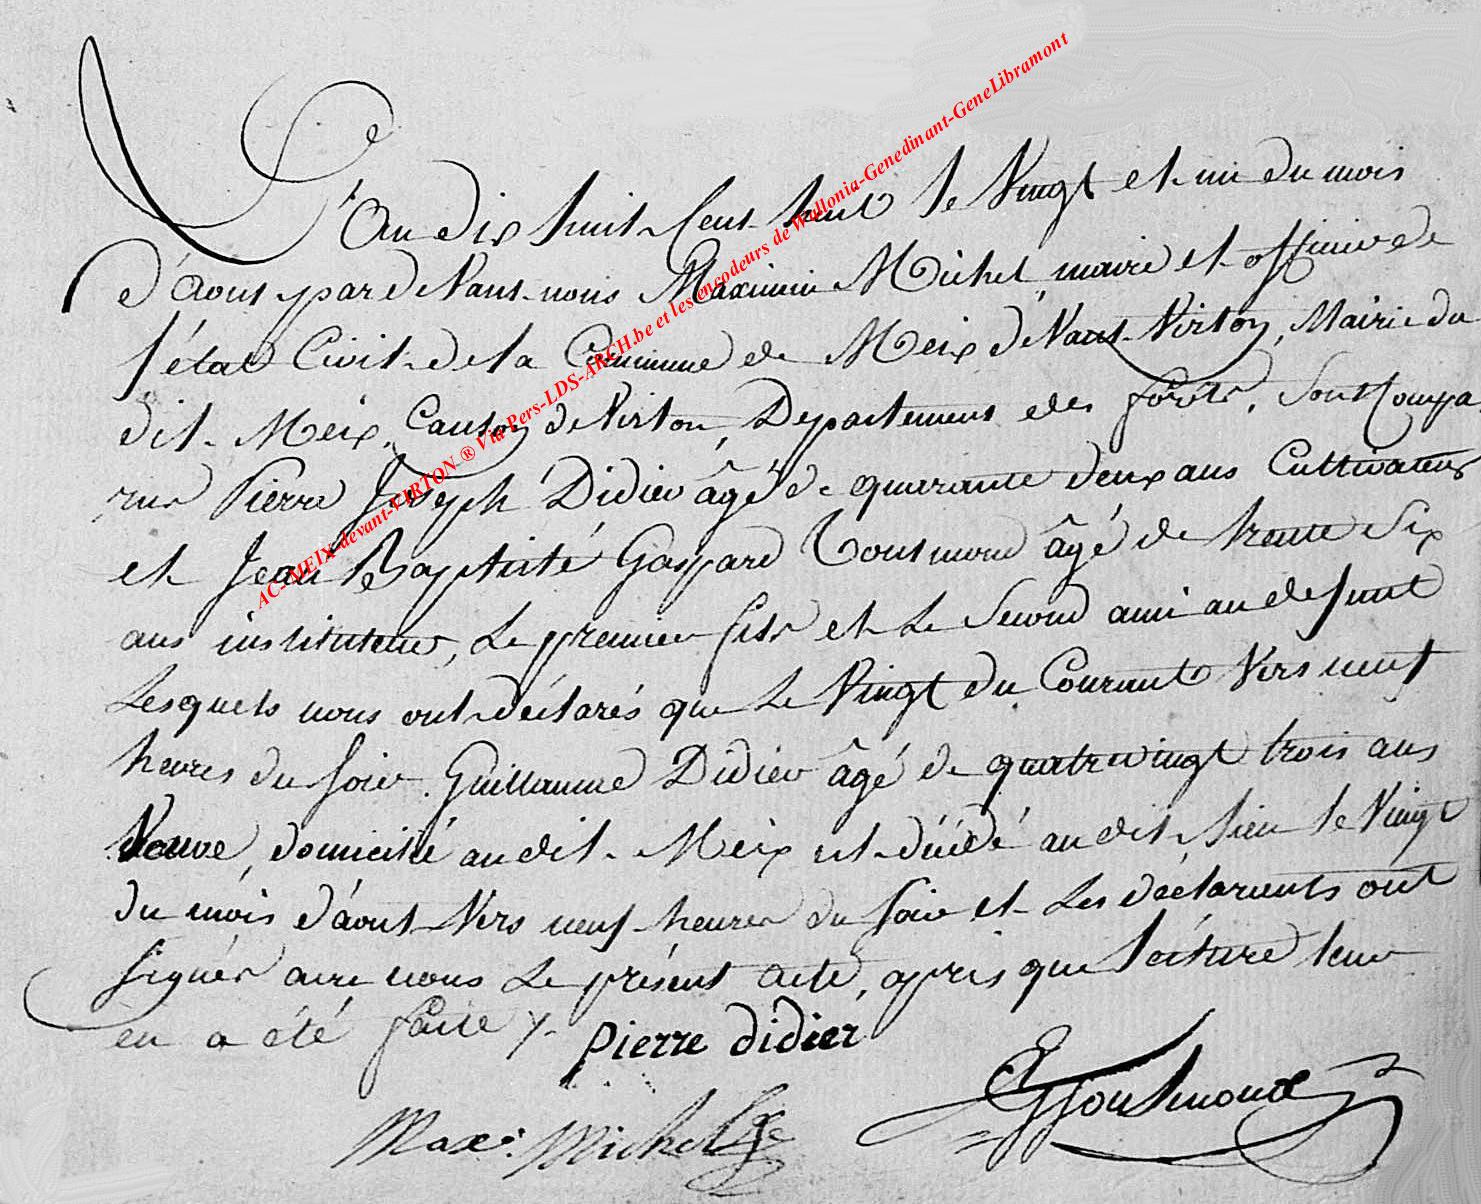 L'An dix huit Cent huit le Vingt et un du mois
d'Aout par deVant nous Maximin Michel maire et officier de
l'état Civil de la Commune de Meix deVant Virton, Mairie du
dit Meix, Canton de Virton, Departement des forêts, Sont Compa
rus Pierre Joseph Didier âgé de quarante deux ans Cultivateur
et Jean Baptiste Gaspard Toutmond âgé de trente Six
ans instituteur, Le premier fils et Le Second ami au defunt
Lesquels nous ont déclarés que Le Vingt du Courant Vers neuf
heures du Soir Guillaume Didier âgé de quatrevingt trois ans
Veuve, domicilié audit Meix est décédé audit lieu le Vingt
du mois d'aout Vers neuf heures du Soir et Les déclarants ont
Signés avec nous Le présent acte, apris que lecture leur
en a été faite
pierre didier
Max: Michel
AC-MEIX-devant-VIRTON ® Via Pers-LDS-ARCH.be et les encodeurs de Wallonia-Genedinant-GeneLibramont